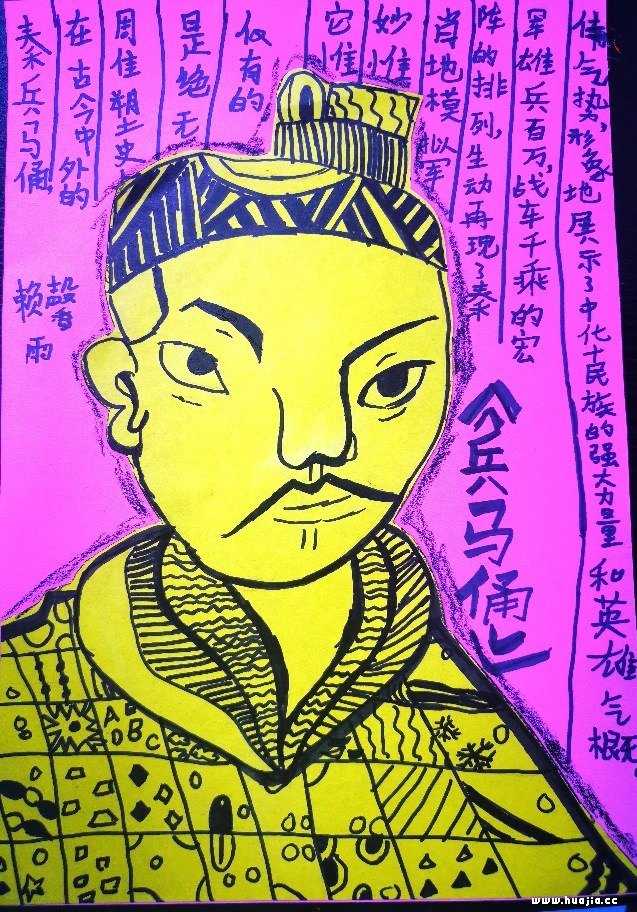 秦兵马俑,
在古今中外的
周佳塑史
是绝无
仅有的
它惟
妙惟
肖地模拟军
阵的排列,生动再现了秦
军雄兵百万,战车千乘的宏
伟气势,形象地展示了中华民族的强大力量和英雄气概
《兵马俑》
赖馨雨
ABC
www.huajia.cc